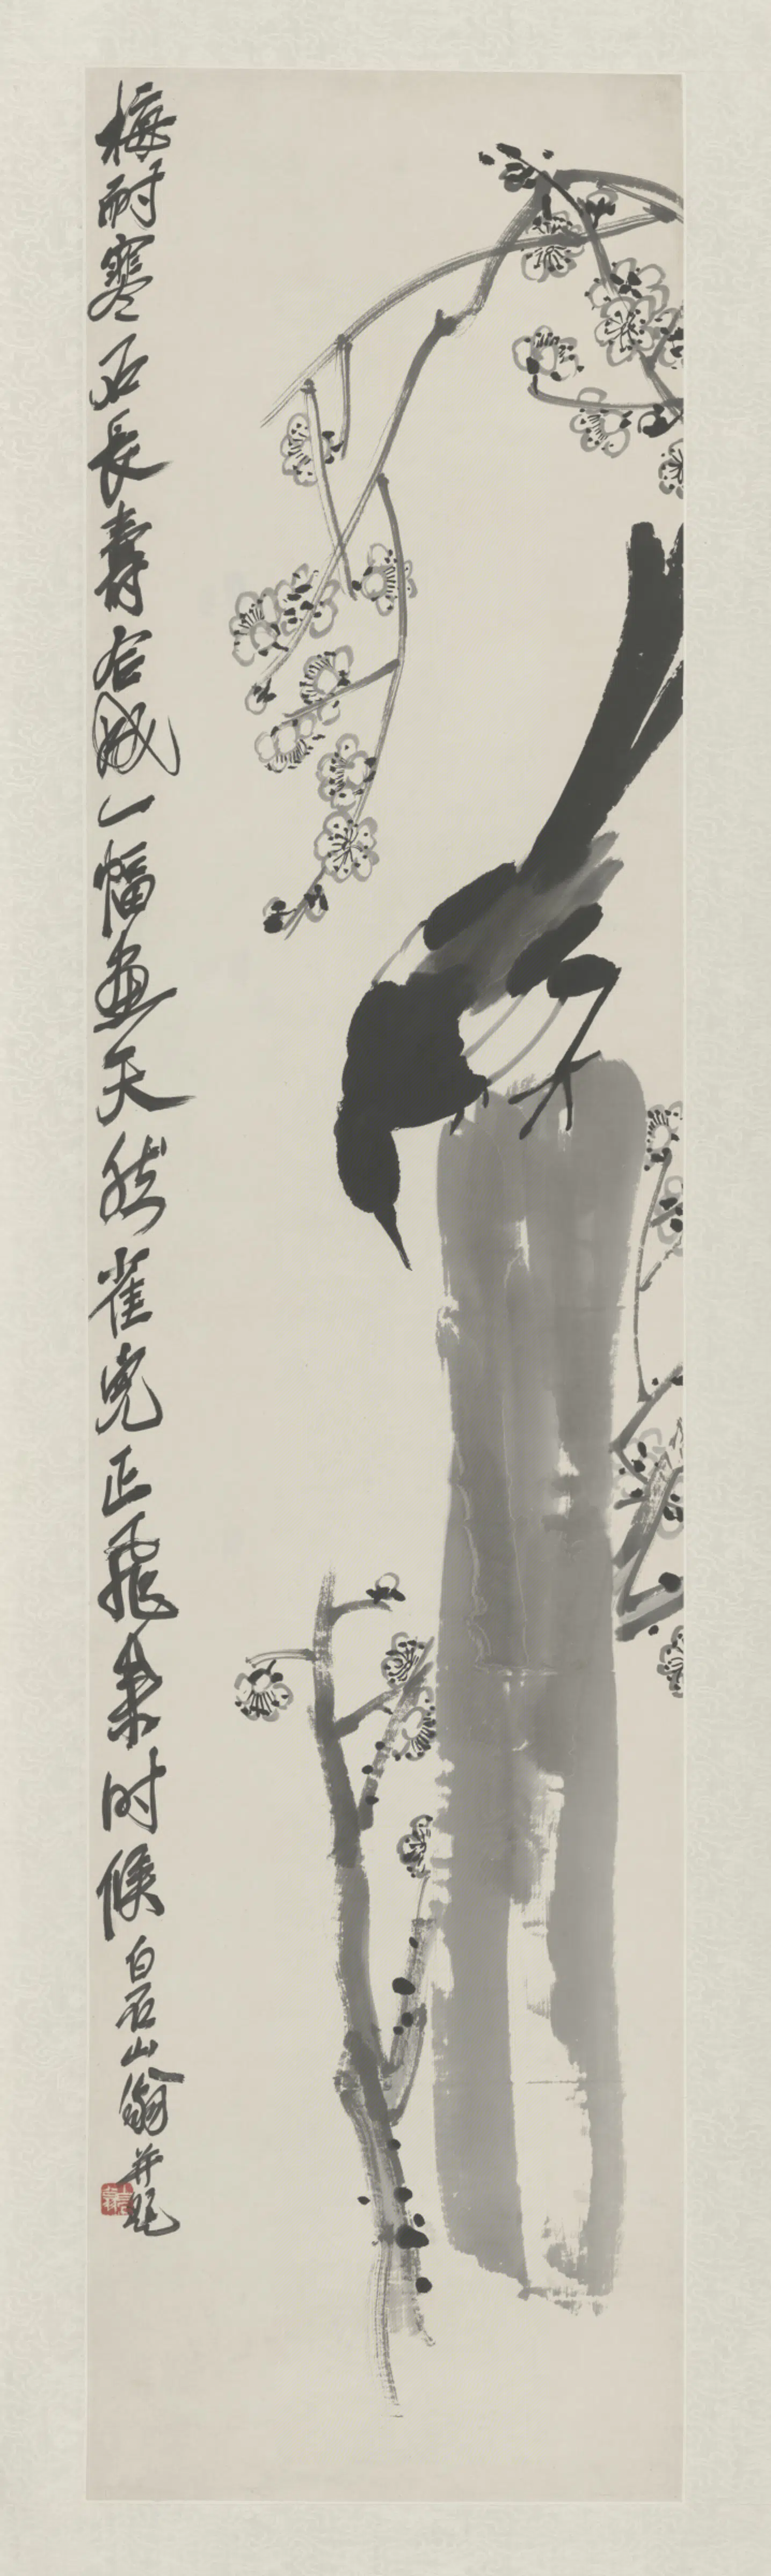 梅耐寒石長壽合成一幅畫天然雀兒正飛來時候
白石山翁并題